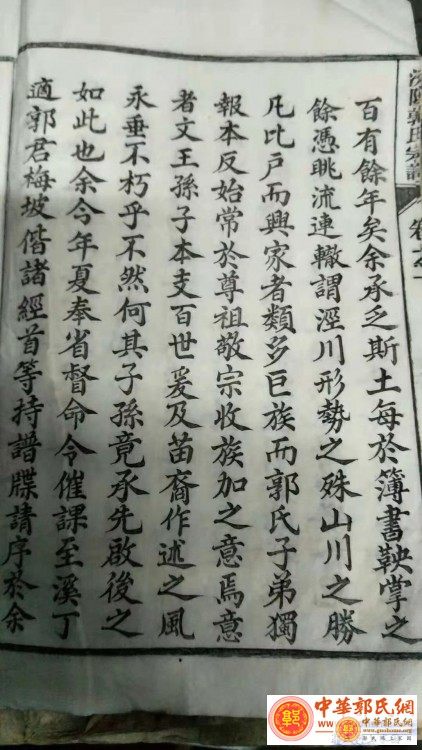 百有餘年矣余承乏斯土每於簿書鞅掌之
餘憑眺流連輒謂涇川形勢之殊山川之勝
凡比戶而興家者類多巨族而郭氏子弟獨
報本反始常於尊祖敬宗收族加之意焉意
者文王孫子本支百世爰及苗裔作述之風
永垂不朽乎不然何其子孫竟承先啟後之
如此也余今年夏奉省督命令催課至溪丁
適郭君梅坡偕諸經首等持譜牒請序於余
郭氏宗譜
卷之一
中華郭氏網
中华郭氏网
www.guohome.org